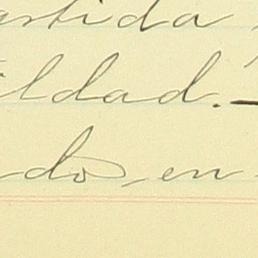 artida
ildad.—
do, en